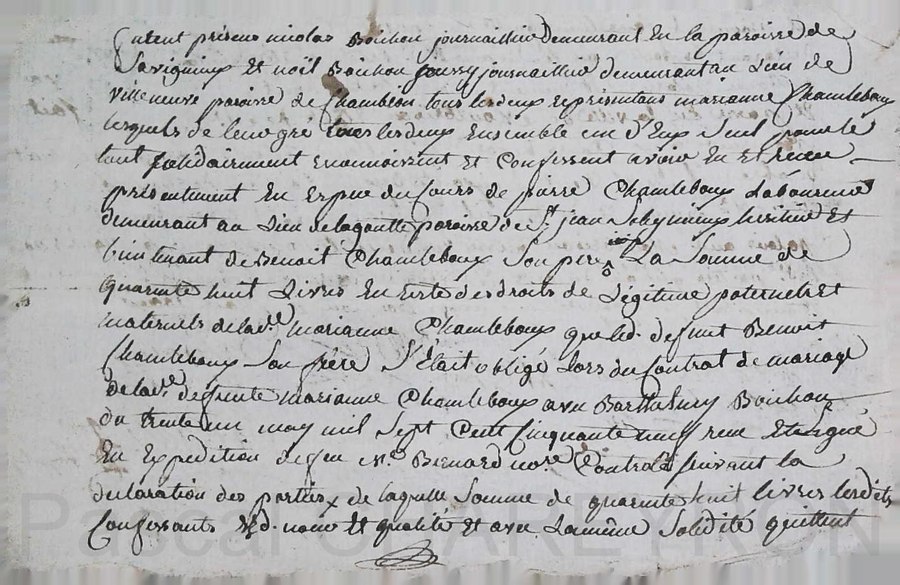 furent présens nicolas Boichon journaillier demeurant En la paroisse de
Savigniux Et noël Boichon journaillier demeurant au Lieu de
Villeneuve paroisse de Chambéon tous lesdeux Représentans marianne Chambeboux
lesquels de leur gré tous lesdeux Ensemble un d'Eux Seul pour le
tout Solidairment reconnoissent Et Confessent avoir Eu Et receu
présentement En Espece du Cours de pierre Chambeboux Laboureur
demeurant au Lieu delagoutte paroisse de St. jean heritier Et
bientenant de Benoit Chambeboux Son pere La Somme de
quarante huit Livres En reste desdroits de Légitime paternels Et
maternels delad. marianne Chambeboux que led. defunt Benoit
Chambeboux Son frére S'Etait obligé Lors du Contrat de mariage
delad. defunte marianne Chambeboux avec Barthelemy Boichon
du trente un may mil Sept Cent Cinquante neuf receu Et Signé
En Expedition defeu Me. Bienard nore. Controlé Suivant la
déclaration des parties de laquelle Somme de quarante huit livres lesdits
Confessants Esd. noms Et qualité Et avec La même Solidité quittent
Pascal CHARETRON